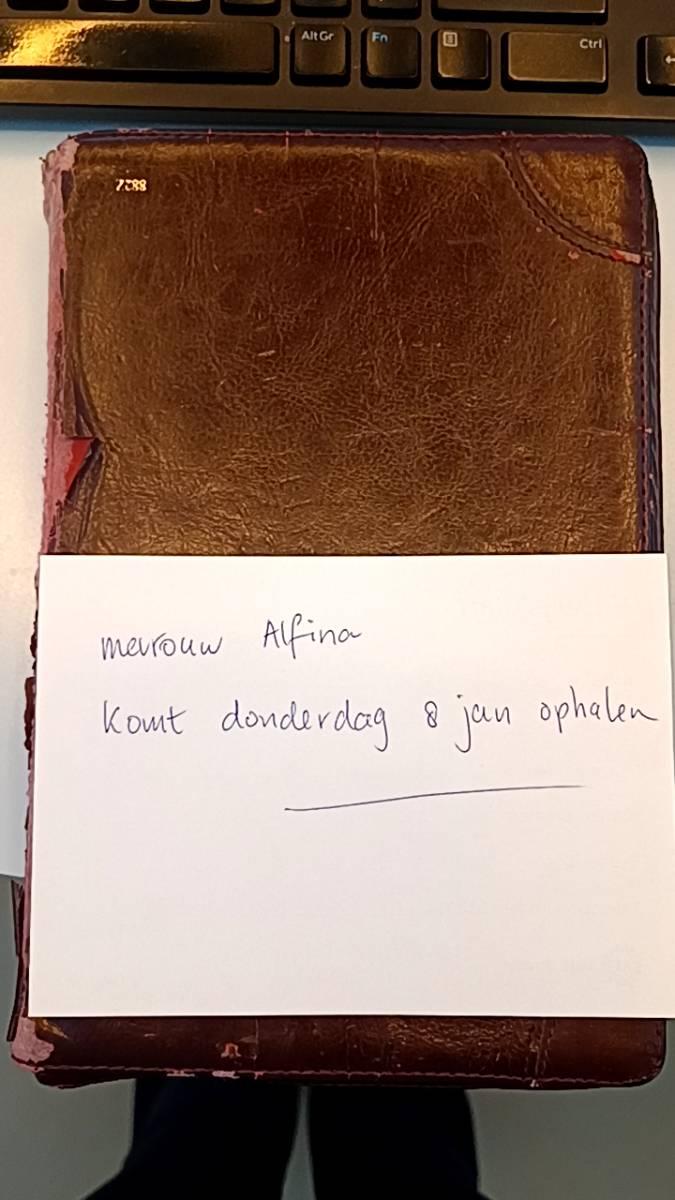 AltGr Fn Ctrl
mevrouw Alfina
komt donderdag 8 jan ophalen